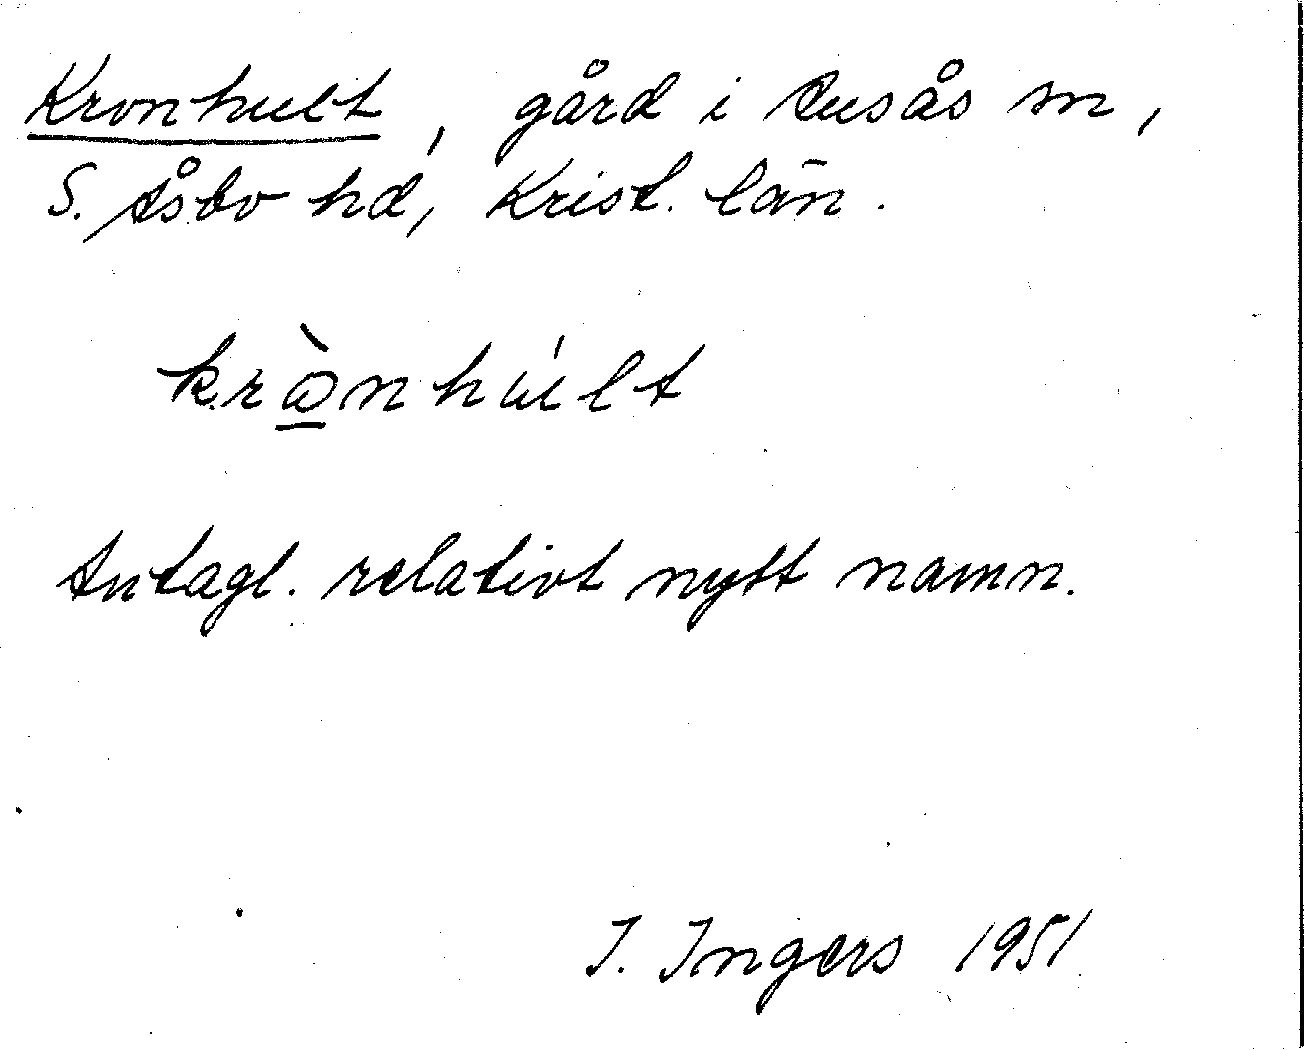 Kronhult, gård i Ausås sn,
S. Åsbo hd, Krist. län.
krὼ̲nhúlt
Antagl. relativt nytt namn.
I. Ingers 1951